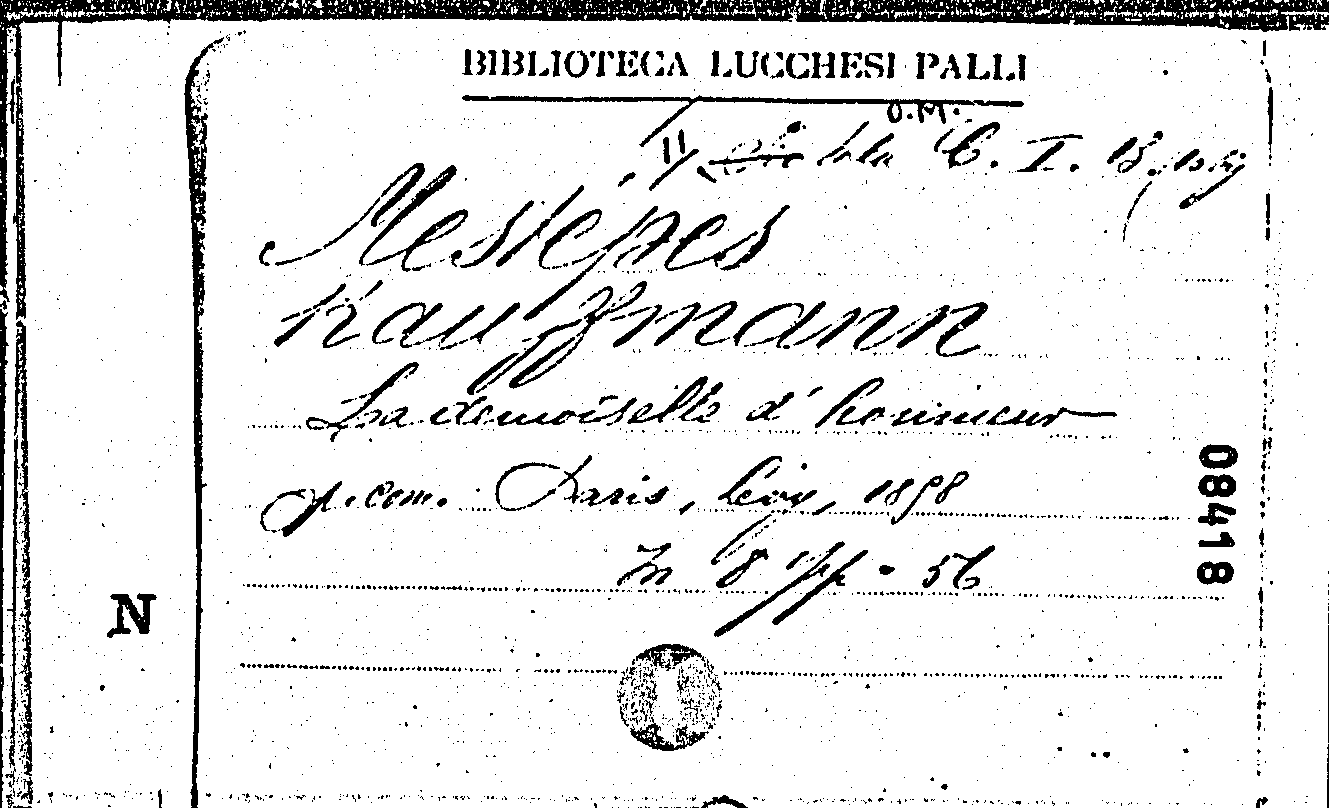 BIBLIOTECA LUCCHESI PALLI
O.M.
Sala C. I. 13
Mestépès
Kauffmann
La demoiselle d'honneur
op. com. Paris, Lévy, 1858
In 8 pp. 56
08418
N